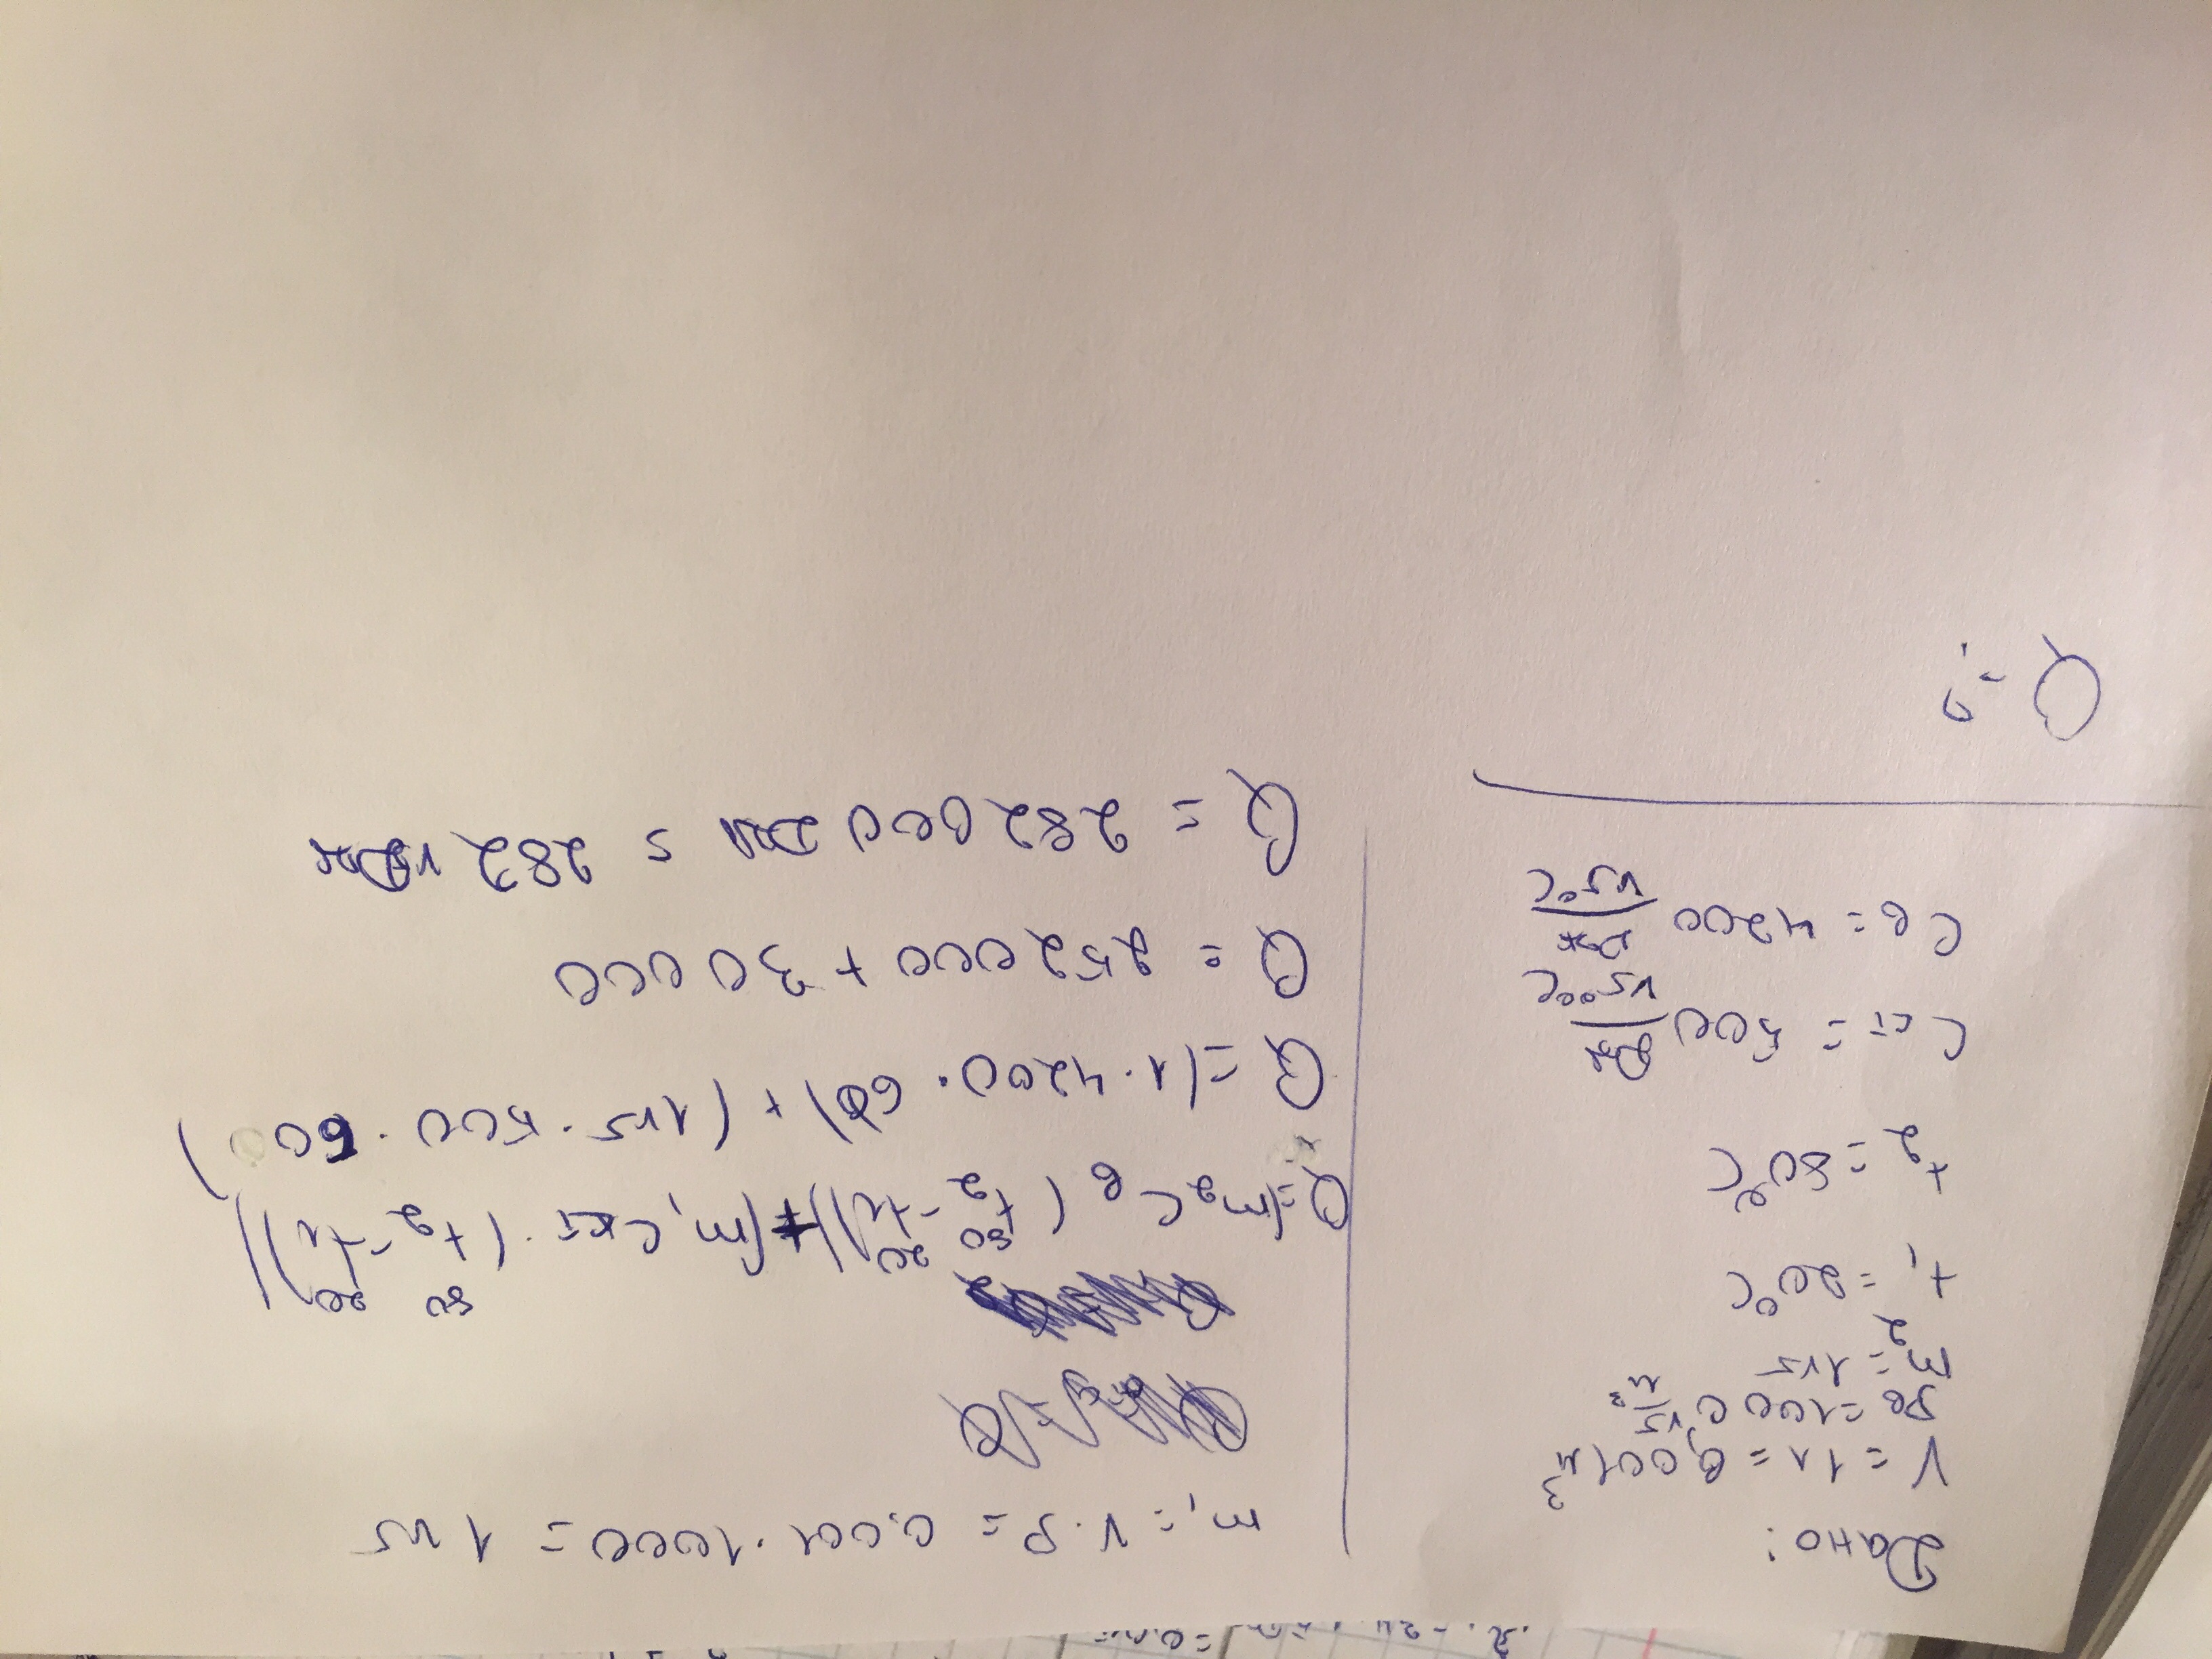 Дано:
V = 1л = 0,001 м³
ρв = 1000 кг/м³
m₂ = 1кг
t₁ = 20°C
t₂ = 80°C
Cст = 500 Дж/кг°C
Cв = 4200 Дж/кг°C
Q - ?
m₁ = V·ρ = 0,001·1000 = 1 кг
80 20
80 20
Q = (1·4200·60) + (1кг·500·60)
Q = 252000 + 30000
Q = 282000 Дж = 282 кДж